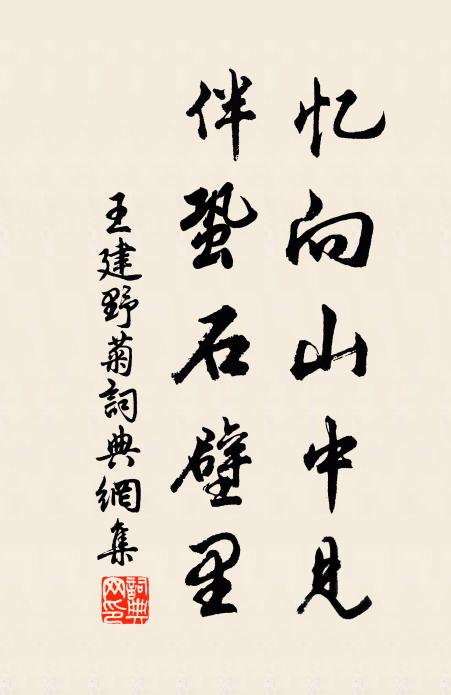 忆向山中见
伴蛩石壁里
王建野菊詞典網集
詞典网印